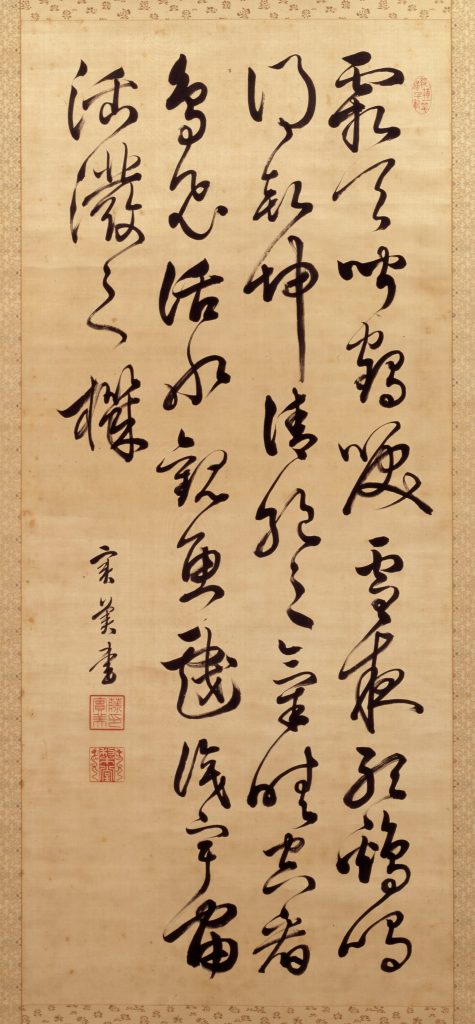 霜天聞鶴唳雪夜聽鷄鳴
得乾坤清純之氣晴空看
鳥飛活水觀魚戲識宇宙
活潑之機
實美書